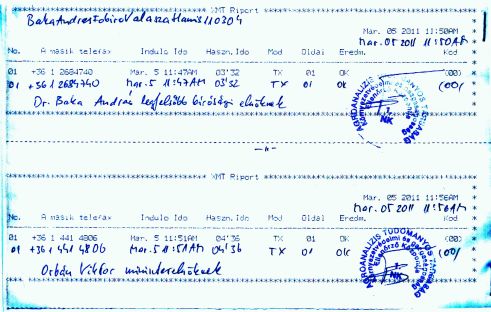 BakaAndrasFobiroValaszaHamis110304
XMT Riport
Mar. 05 2011 11:50AM
Mar. 05 2011 11:50AM
No. A másik telefax Indulo Ido Haszn.Ido Mod Oldal Eredm. Kod
01 +36 1 2684740 Mar. 5 11:47AM 03'32 TX 01 OK (00)
01 +36 1 2684740 Mar. 5 11:47AM 03'32 TX 01 OK (00)
Dr. Baka András legfelsőbb bírósági elnöknek
AGROANALIZIS TUDOMÁNYOS TÁRSASÁG
NK
XMT Riport
Mar. 05 2011 11:56AM
Mar. 05 2011 11:56AM
No. A másik telefax Indulo Ido Haszn.Ido Mod Oldal Eredm. Kod
01 +36 1 441 4806 Mar. 5 11:51AM 04'36 TX 01 OK (00)
01 +36 1 441 4806 Mar. 5 11:51AM 04'36 TX 01 OK (00)
Orbán Viktor miniszterelnöknek
AGROANALIZIS TUDOMÁNYOS TÁRSASÁG
NK